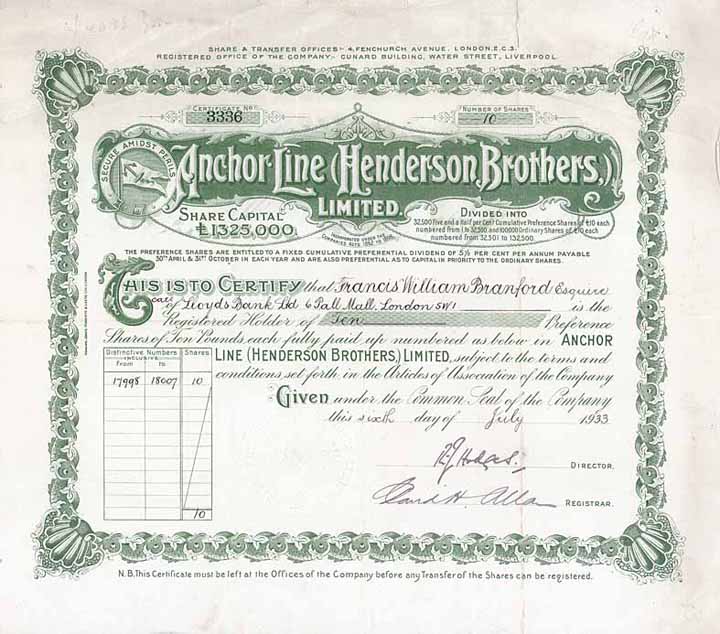 SHARE & TRANSFER OFFICES:- 4, FENCHURCH AVENUE, LONDON, E.C.3.
REGISTERED OFFICE OF THE COMPANY:- CUNARD BUILDING, WATER STREET, LIVERPOOL.
CERTIFICATE No.
3336
NUMBER OF SHARES
10
SECURE AMIDST PERILS
Anchor-Line (Henderson, Brothers,)
LIMITED.
SHARE CAPITAL
£1,325,000.
INCORPORATED UNDER THE
COMPANIES ACTS 1862 TO 1898.
DIVIDED INTO
32,500 Five and a Half per Cent Cumulative Preference Shares of £10 each
numbered from 1 to 32,500 and 100,000 Ordinary Shares of £10 each
numbered from 32,501 to 132,500.
THE PREFERENCE SHARES ARE ENTITLED TO A FIXED CUMULATIVE PREFERENTIAL DIVIDEND OF 5½ PER CENT PER ANNUM PAYABLE
30TH APRIL & 31ST OCTOBER IN EACH YEAR AND ARE ALSO PREFERENTIAL AS TO CAPITAL IN PRIORITY TO THE ORDINARY SHARES.
THIS IS TO CERTIFY that Francis William Branford Esquire
care of Lloyds Bank Ltd 6 Pall Mall London SW1 is the
Registered Holder of Ten Preference
Shares of Ten Pounds each fully paid up numbered as below in ANCHOR
LINE (HENDERSON BROTHERS,) LIMITED, subject to the terms and
conditions set forth in the Articles of Association of the Company
Distinctive Numbers
INCLUSIVE
From to
Shares
17998 18007 10
10
Given under the Common Seal of the Company
this sixth day of July 1933
DIRECTOR.
David H. Allan
REGISTRAR.
N.B. This Certificate must be left at the Offices of the Company before any Transfer of the Shares can be registered.